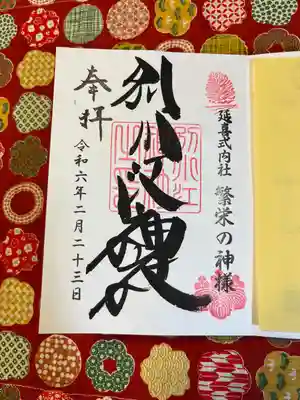 延喜式内社
繁栄の神様
別小江神社
奉拝
令和六年二月二十三日